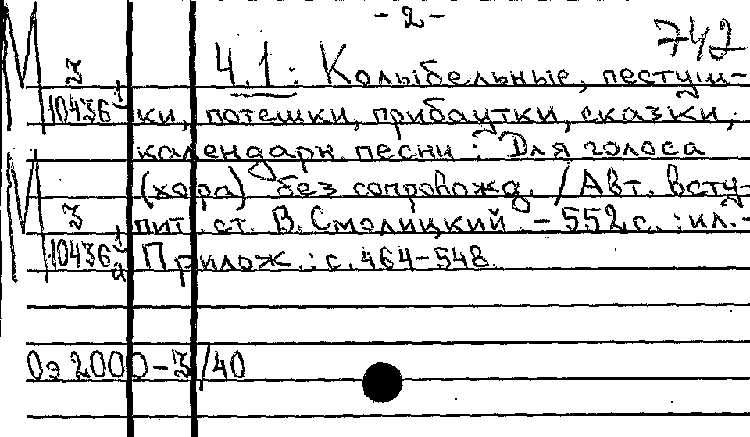 - 2 -
742
Ч.1: Колыбельные, пестуш-
ки, потешки, прибаутки, сказки,
календарн. песни : Для голоса
(хора) без сопровожд. / Авт. всту-
пит. ст. В. Смолицкий. - 552 с. : ил. -
Прилож.: с. 464-548.
М З
10436 1
М З
10436 1а
Оэ 2000-3/40